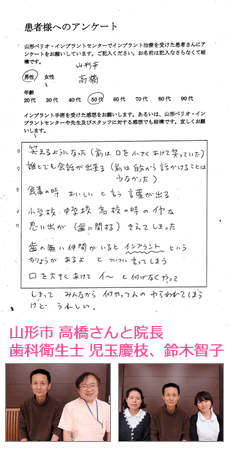 患者様へのアンケート
山形ペリオ・インプラントセンターでインプラント治療を受けた患者さんにアンケートをお願いしています。ご記入ください。お名前は記入なさらなくて結構です。
山形市
高橋
男性 女性
年齢
20代 30代 40代 50代 60代 70代 80代 90代
インプラント手術を受けた感想をお願いします。あるいは、山形ペリオ・インプラントセンターや先生及びスタッフに対する感想でも結構です。宜しくお願いします。
笑えるようになった(前は口を小さくあけて笑っていた)
誰とでも会話が出来る(前は自分から話かけることは
少なかった)
食事の時 おいしいと言う言葉が出る
小学校・中学校 高校の時の
思い出が(歯に関する)きえてしまった
歯の無い仲間がいるとインプラントという
ちりょうがあるよ とついつい言ってしまう
口を大きくあけて イ〜と
しまって みんなから 何やってんのやらわれてしまう
けど うれしい。
山形市 高橋さんと院長
歯科衛生士 児玉慶枝、鈴木智子